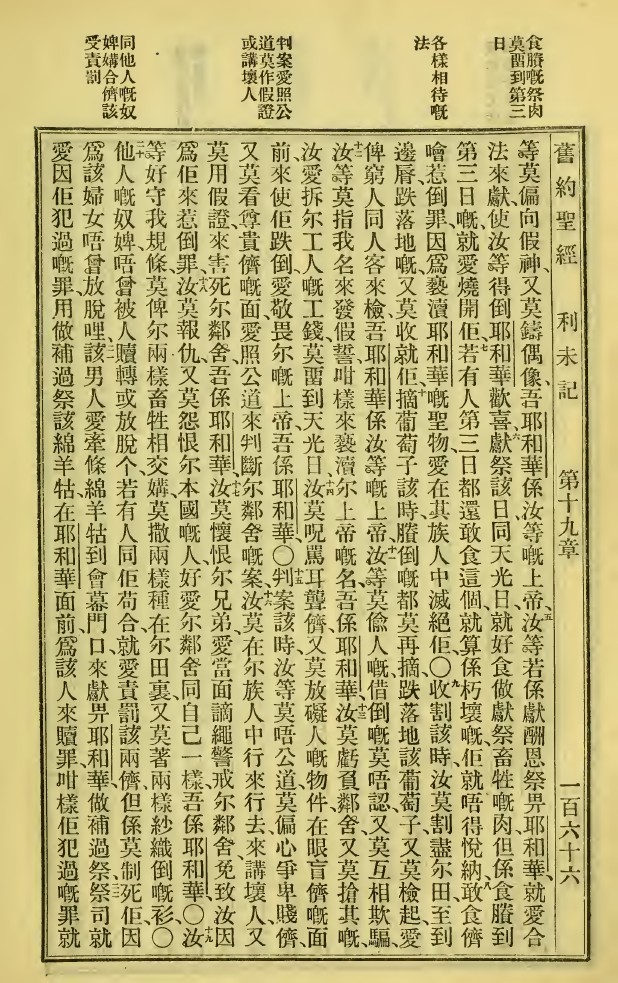 食賸嘅祭肉
莫畱到第三
日
各樣相待嘅
法
判案愛照公
道莫作假證
或講壞人
同他人嘅奴
婢媾合儕該
受責罰
舊約聖經 利未記 第十九章 一百六十六
等莫偏向假神、又莫鑄偶像、吾耶和華係汝等嘅上帝、五汝等若係獻酬恩祭畀耶和華、就愛合
法來獻、使汝等得倒耶和華歡喜、六獻祭該日同天光日、就好食做獻祭畜牲嘅肉、但係食賸到
第三日嘅、就愛燒開佢、七若有人第三日都還敢食這個、就算係朽壞嘅、佢就唔得悅納、八敢食儕
噲惹倒罪、因爲褻瀆耶和華嘅聖物、愛在其族人中滅絕佢、〇九收割該時、汝莫割盡尓田至到
邊脣、跌落地嘅、又莫收、就佢十摘葡萄子該時、賸倒嘅都莫再摘、跌落地該葡萄子、又莫檢起、愛
俾窮人同人客來檢、吾耶和華係汝等嘅上帝、十一汝等莫偸人嘅、借倒嘅莫唔認、又莫互相欺騙、
十二汝等莫指我名來發假誓、咁樣來褻瀆尓上帝嘅名、吾係耶和華、十三汝莫虧負鄰舍、又莫搶其嘅、
汝愛拆尓工人嘅工錢、莫畱到天光日、十四汝莫呪罵耳聾儕、又莫放礙人嘅物件在眼盲儕嘅面
前、來使佢跌倒、愛敬畏尓嘅上帝、吾係耶和華、〇十五判案該時、汝等莫唔公道、莫偏心爭卑賤儕、
又莫看尊貴儕嘅面、愛照公道來判斷尓鄰舍嘅案、十六汝莫在尓族人中行來行去來講壞人、又
莫用假證來害死尓鄰舍、吾係耶和華、十七汝莫懷恨尓兄弟、愛當面謫繩警戒尓鄰舍、免致汝因
爲佢來惹倒罪、十八汝莫報仇、又莫怨恨尓本國嘅人、好愛尓鄰舍同自己一樣、吾係耶和華、〇十九汝
等好守我規條、莫俾尓兩樣畜牲相交媾、莫撒兩樣種在尓田裏、又莫著兩樣紗織倒嘅衫、〇
二十他人嘅奴婢、唔曾被人贖轉、或放脫个、若有人同佢苟合、就愛責罰該兩儕、但係莫制死佢、因
爲該婦女唔曾放脫哩、二一該男人愛牽條綿羊牯、到會幕門口、來獻畀耶和華做補過祭、二二祭司就
愛因佢犯過嘅罪、用做補過祭該綿羊牯、在耶和華面前、爲該人來贖罪、咁樣佢犯過嘅罪就